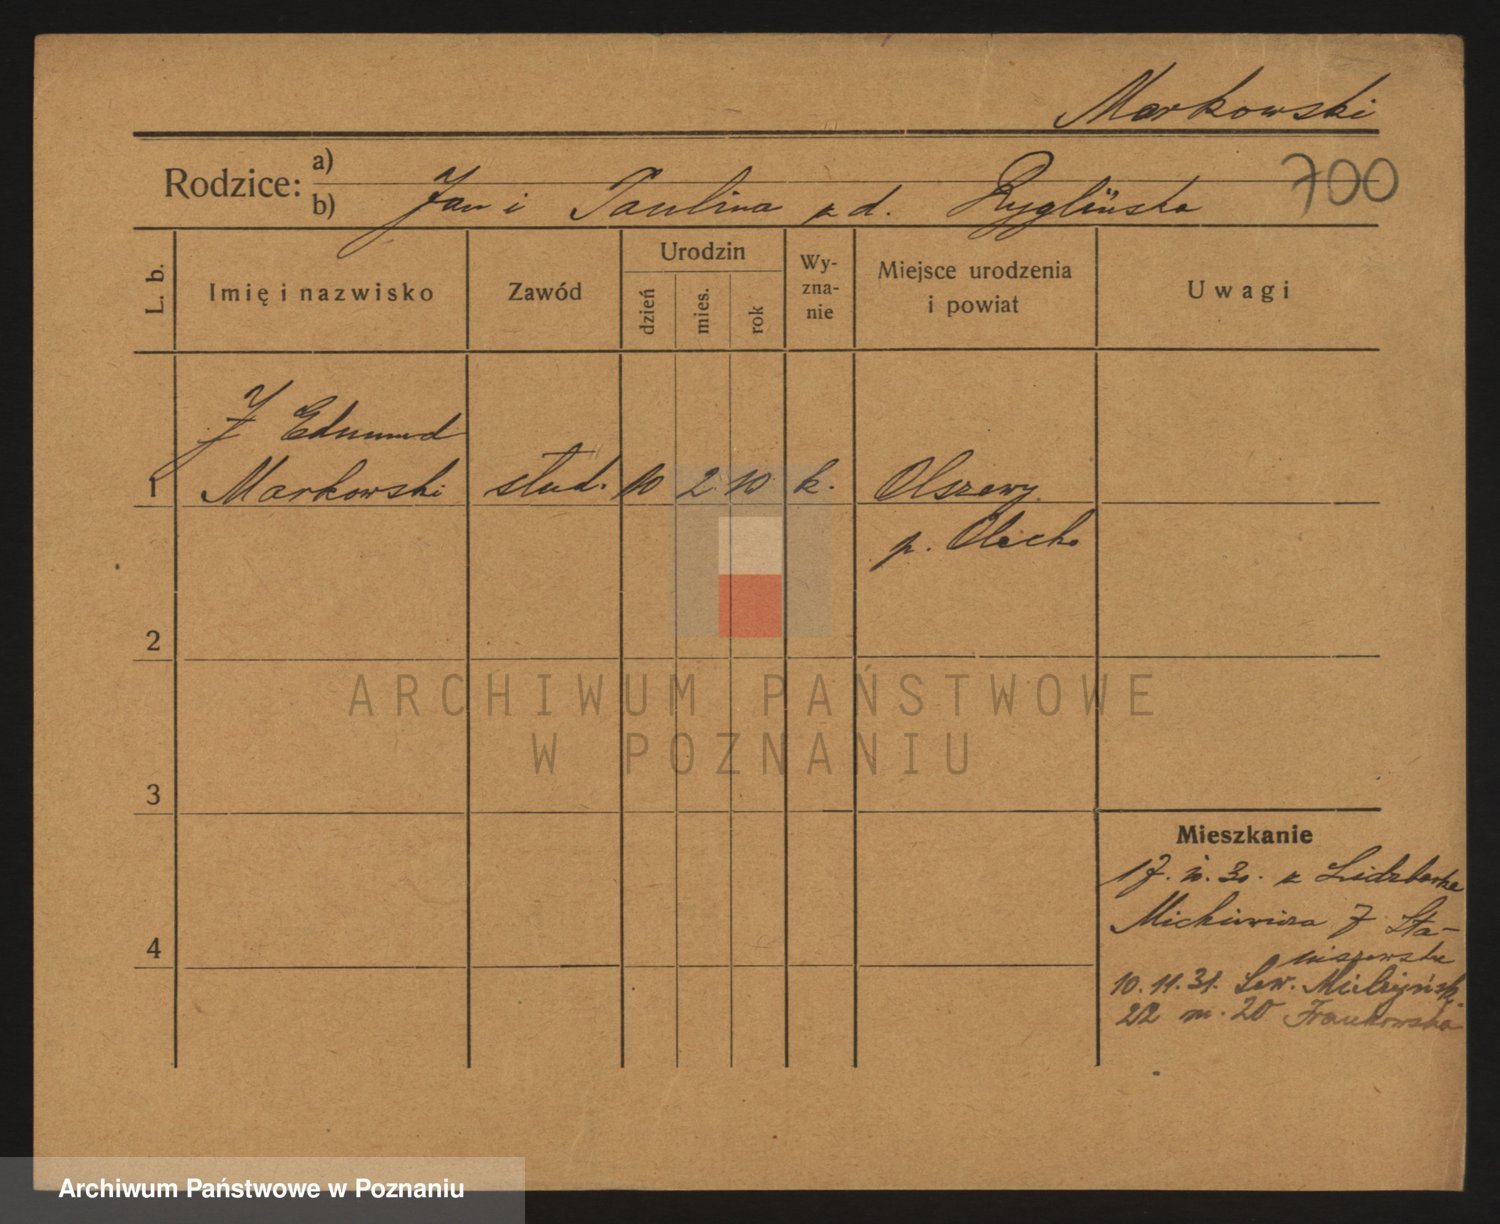 Markowski
Rodzice: a)
b) Jan i Paulina z d. Ryglińska
700
L. b.
Imię i nazwisko
Zawód
Urodzin
dzień
mies.
rok
Wy-
zna-
nie
Miejsce urodzenia
i powiat
Uwagi
J Edmund
1 Markowski stud. 10 2 10 k. Olszewy
p. Olecko
2
ARCHIWUM PAŃSTWOWE
W POZNANIU
3
Mieszkanie
17. 10. 30. z Lidzbarka
Mickiewicza 7 Sta-
niszewska
4
10. 11. 31. Sew. Mielżyńsk.
22 m. 20 Frankowska
Archiwum Państwowe w Poznaniu